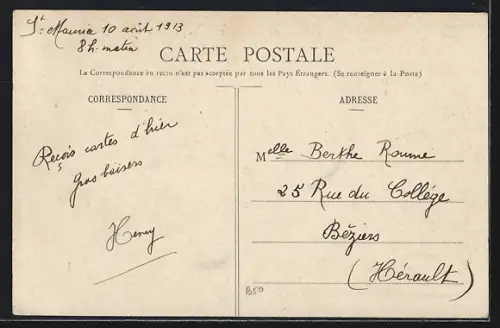 St Maurice 10 août 1913
8h. matin
CARTE POSTALE
La Correspondance au recto n'est pas acceptée par tous les Pays Étrangers. (Se renseigner à la Poste)
CORRESPONDANCE
ADRESSE
Reçois cartes d'hier
Gros baisers
Henry
Melle Berthe Roume
25 Rue du Collége
Béziers
(Hérault)
B50